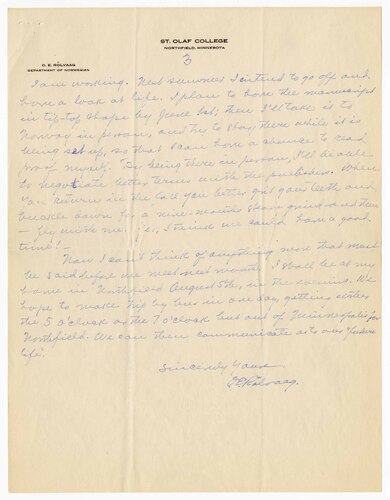 ST. OLAF COLLEGE
NORTHFIELD, MINNESOTA
O. E. ROLVAAG
DEPARTMENT OF NORWEGIAN
3
I am working. Next summer I intend to go off and
have a look at life. I plan to have the manuscript
in tip-top shape by June 1st; then I'll take it to
Norway in person, and try to stay there while it is
being set up, so that I can have a chance to read
proof myself. By being there in person, I'll be able
to negotiate better terms with the publishers. When
you return in the fall you better grit your teeth and
buckle down for a nine-months steam grind and then
- fly with me. Yes, I think we could have a good
time! -
Now I can't think of anything more that must
be said before we meet next month. I shall be at my
home in Northfield August 5th, in the evening. We
hope to make trip by bus in one day, getting either
the 5 o'clock or the 7 o'clock bus out of Minneapolis for
Northfield. We can then communicate as to our future
life.
Sincerely Yours
O.E. Rölvaag.